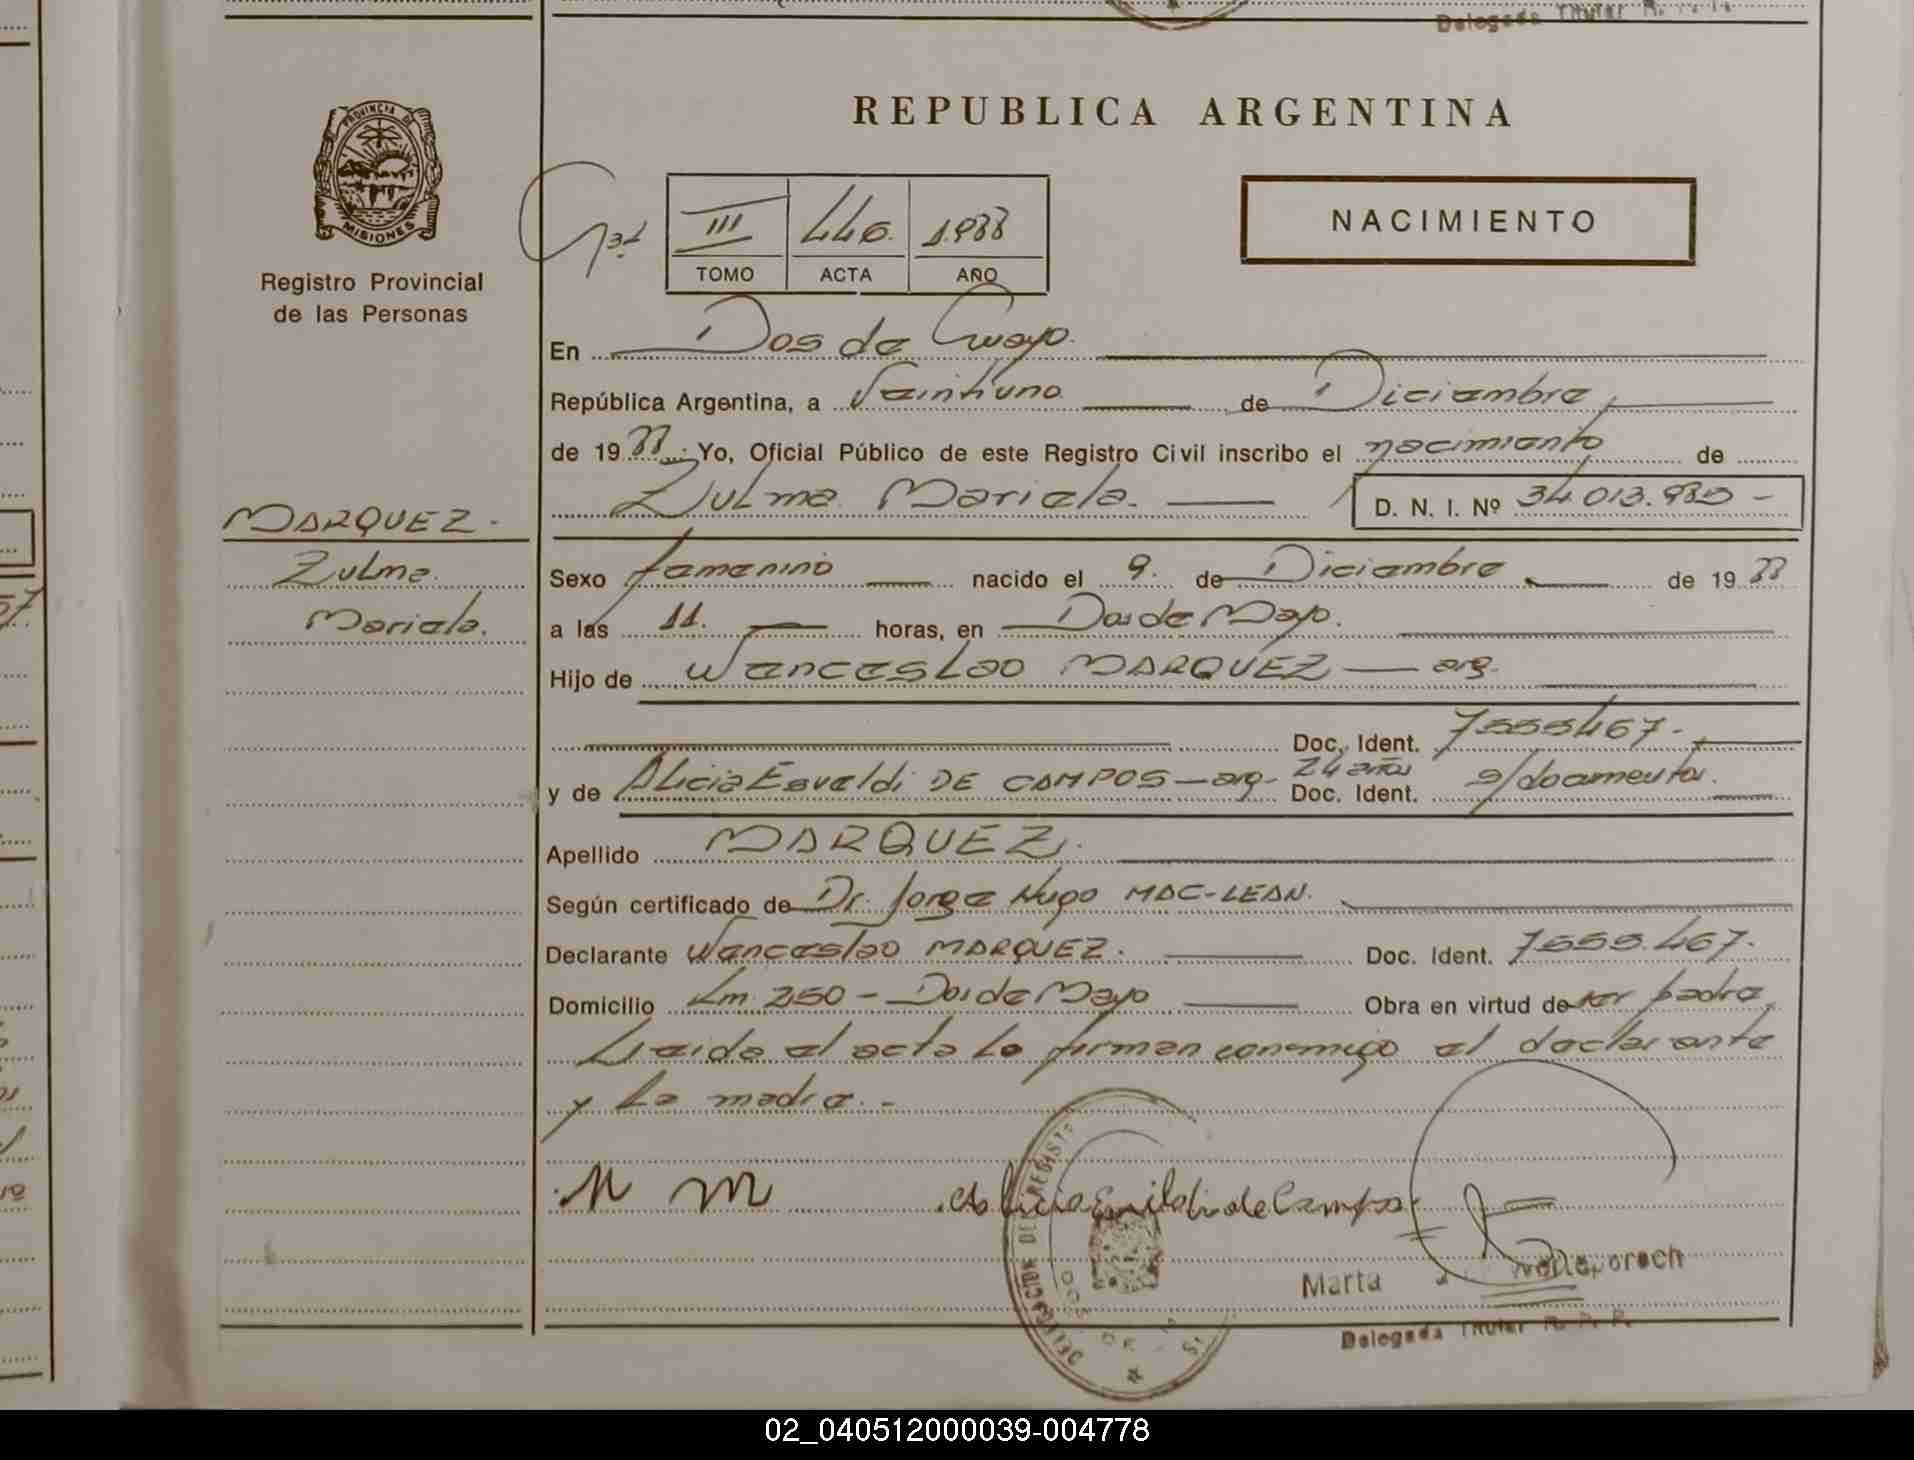 Delegada Titular R. P. P.
REPUBLICA ARGENTINA
PROVINCIA DE
MISIONES
Registro Provincial
de las Personas
III 446. 1.988
TOMO ACTA AÑO
NACIMIENTO
En Dos de Mayo.
República Argentina, a Veintiuno de Diciembre
de 1988 Yo, Oficial Público de este Registro Civil inscribo el nacimiento de
Zulma Mariela. D. N. I. Nº 34.013.985 -
MARQUEZ.
Zulma
Mariela.
Sexo femenino nacido el 9. de Diciembre de 1988
a las 11. horas, en Dos de Mayo.
Hijo de Wenceslao MARQUEZ — arg.
Doc. Ident. 7555467.-
y de Alicia Esvaldi DE CAMPOS — arg- 24 años Doc. Ident. s/documentos.
Apellido MARQUEZ.
Según certificado de Dr. Jorge Hugo MAC-LEAN.
Declarante Wenceslao MARQUEZ. Doc. Ident. 7555.467.
Domicilio Km. 250 - Dos de Mayo Obra en virtud de ser padre,
Leida el acta la firman conmigo el declarante
y la madre.-
M M
Alicia de Campos
Marta
Delegada Titular R. P. P.
DELEGACION DEL REGISTRO
DOS DE
02_040512000039-004778